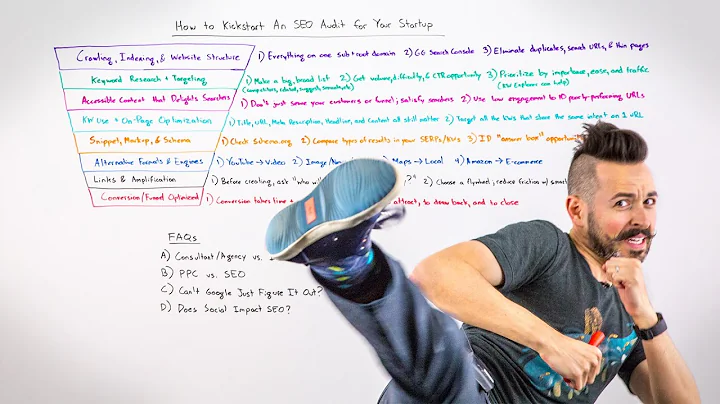 How to Kickstart An SEO Audit for Your Startup
Crawling, Indexing, & Website Structure 1) Everything on one sub+root domain 2) GG Search Console 3) Eliminate duplicates, search URLs, & thin pages
Keyword Research + Targeting 1) Make a big, broad list 2) Get volume, difficulty, & CTR opportunity 3) Prioritize by importance, ease, and traffic
(competitors, related, suggest, semantic) (KW Explorer can help)
Accessible Content that Delights Searchers 1) Don't just serve your customers or funnel, satisfy searchers 2) Use low engagement to ID poorly-performing URLs
KW Use + On-Page Optimization 1) Title, URL, Meta Description, Headline, and Content all still matter 2) Target all the KWs that share the same intent on 1 URL
Snippet, Markup, & Schema 1) Check schema.org 2) Compare types of results in your SERPs/KWs 3) ID "answer box"
Alternative Formats & Engines 1) YouTube → Video 2) Image/ Maps → Local 4) Amazon → E-commerce
Links & Amplification 1) Before creating, ask "who ?" 2) Choose a flywheel, reduce friction w/
Conversion/Funnel Optimized 1) Conversion takes time + attract, to draw back, and to close
FAQs
A) Consultant/Agency vs.
B) PPC vs. SEO
C) Can't Google Just Figure It Out?
D) Does Social Impact SEO?